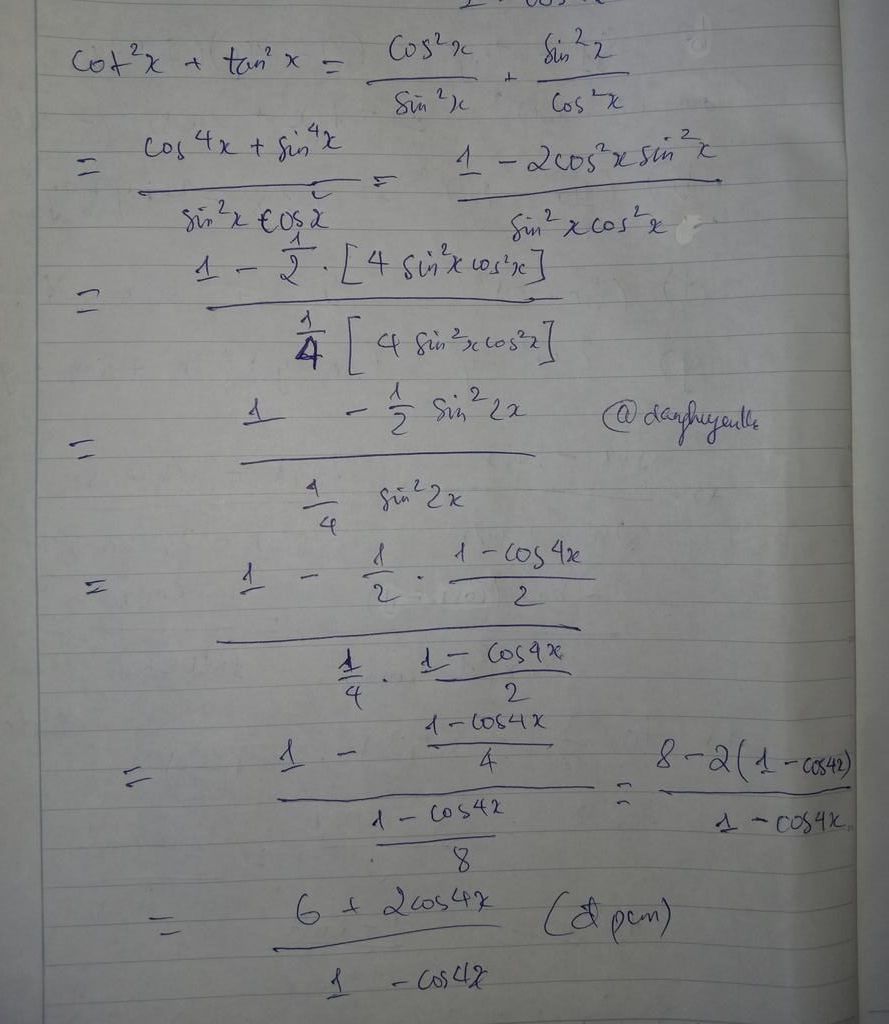 cot²x + tan²x = cos²x / sin²x + sin²x / cos²x
= (cos⁴x + sin⁴x) / (sin²x cos²x) = (1 - 2cos²x sin²x) / (sin²x cos²x)
= (1 - 1/2 · [4 sin²x cos²x]) / (1/4 [4 sin²x cos²x])
= (1 - 1/2 sin²2x) / (1/4 sin²2x) @danghuyenllc
= (1 - 1/2 · (1 - cos4x)/2) / (1/4 · (1 - cos4x)/2)
= (1 - (1 - cos4x)/4) / ((1 - cos4x)/8) = (8 - 2(1 - cos4x)) / (1 - cos4x)
= (6 + 2cos4x) / (1 - cos4x) (đpcm)